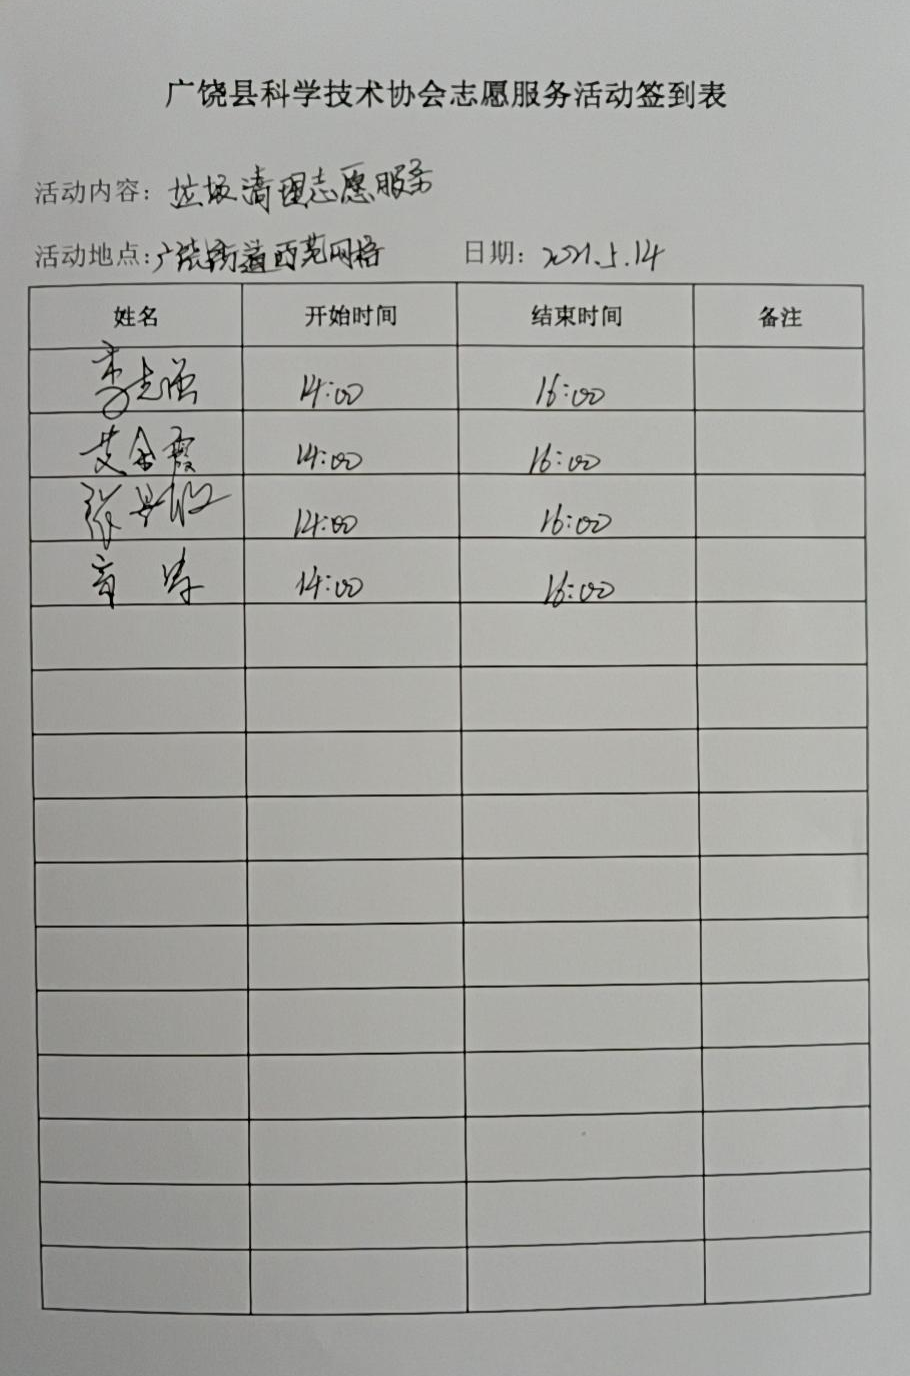 广饶县科学技术协会志愿服务活动签到表
活动内容：垃圾清理志愿服务
活动地点：广饶街道西苑网格 日期：2021.5.14
姓名 开始时间 结束时间 备注
李志强 14:00 16:00
艾金霞 14:00 16:00
张 14:00 16:00
14:00 16:00